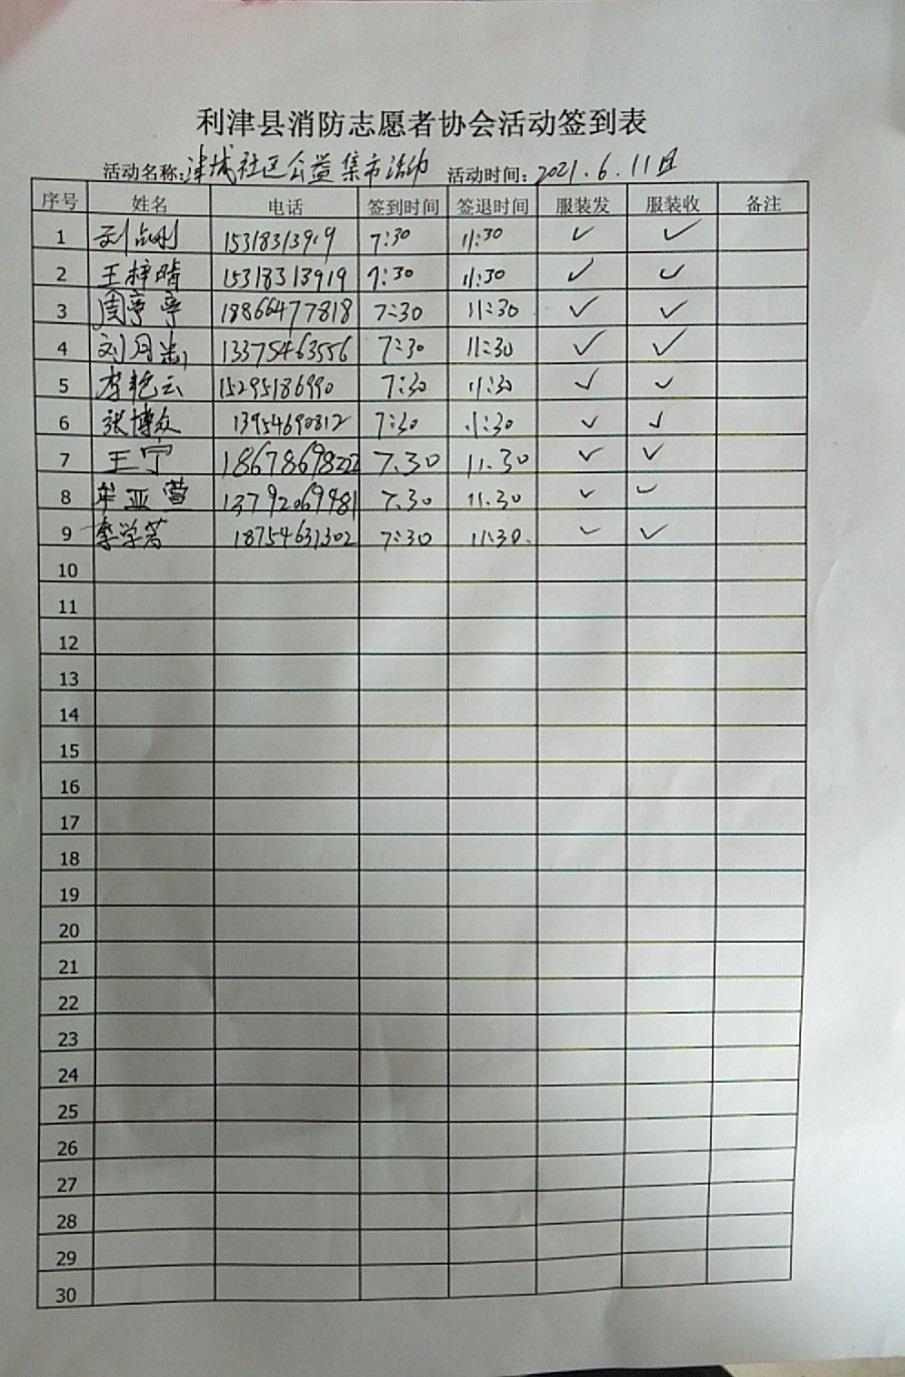 利津县消防志愿者协会活动签到表
活动名称:津城社区公益集市活动 活动时间:2021.6.11日
序号 姓名 电话 签到时间 签退时间 服装发 服装收 备注
1 刘 15318313919 7:30 11:30 ✓ ✓
2 王梓晴 15318313919 7:30 11:30 ✓ ✓
3 周亭亭 18866477818 7:30 11:30 ✓ ✓
4 刘月 13375463556 7:30 11:30 ✓ ✓
5 李艳云 15295186990 7:30 11:30 ✓ ✓
6 张博众 13954690812 7:30 11:30 ✓ ✓
7 王宁 18678698222 7.30 11.30 ✓ ✓
8 牟亚萱 13792069981 7.30 11.30 ✓ ✓
9 李学芳 18754631302 7:30 11:30. ✓ ✓
10
11
12
13
14
15
16
17
18
19
20
21
22
23
24
25
26
27
28
29
30